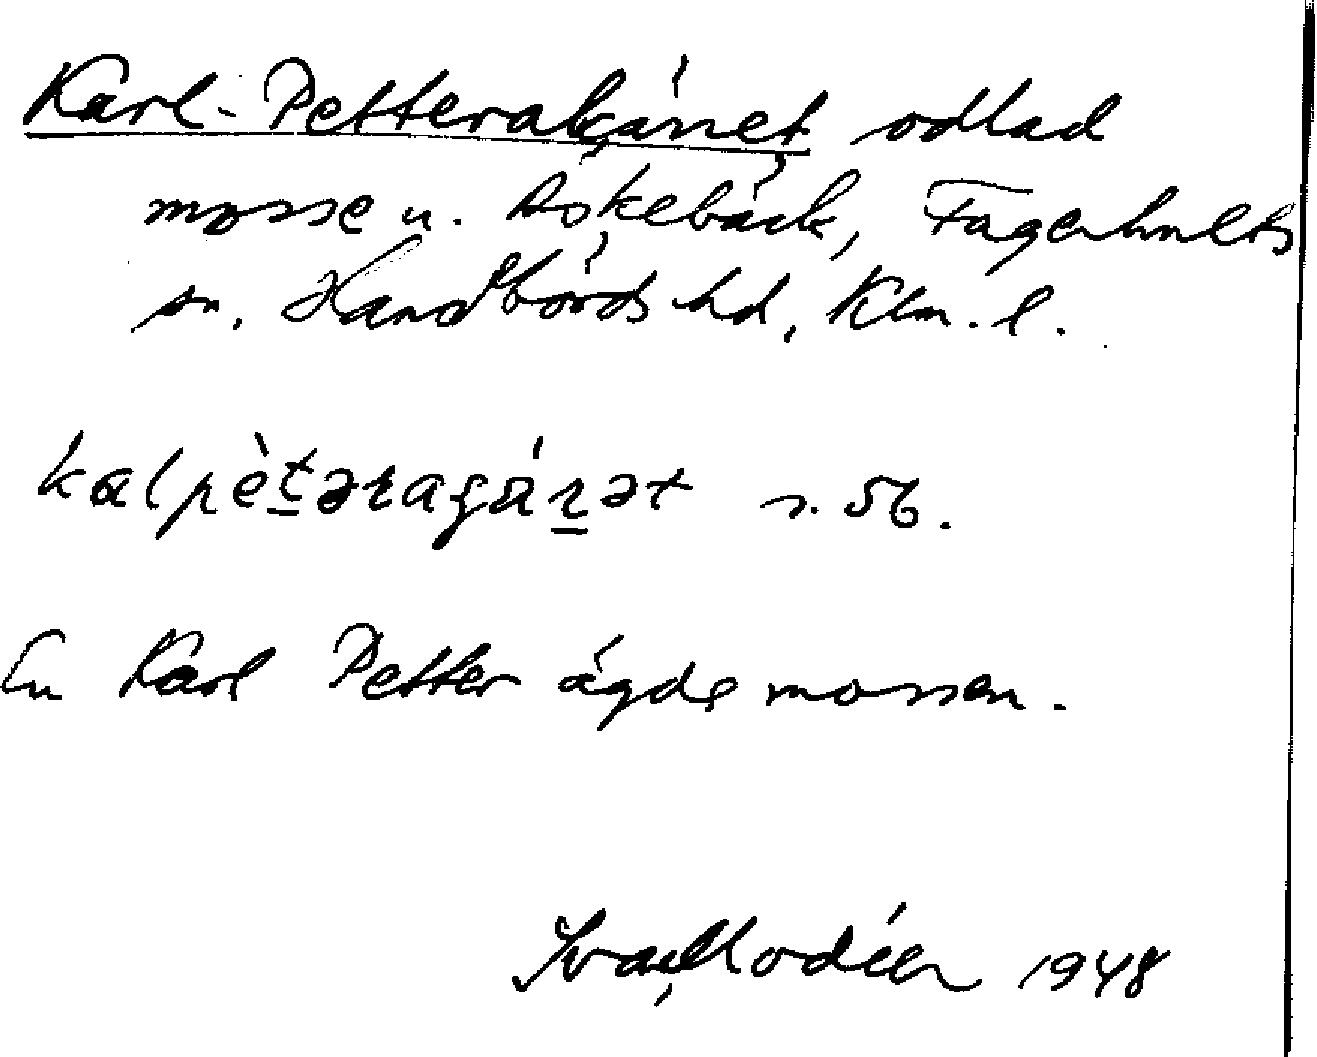 Karl-Petterakärret odlad
mosse u. Askebäck, Fagerhults
sn, Handbörds hd, Klm. l.
s. 56.
En Karl Petter ägde mossen.
Ivar Modéer 1948